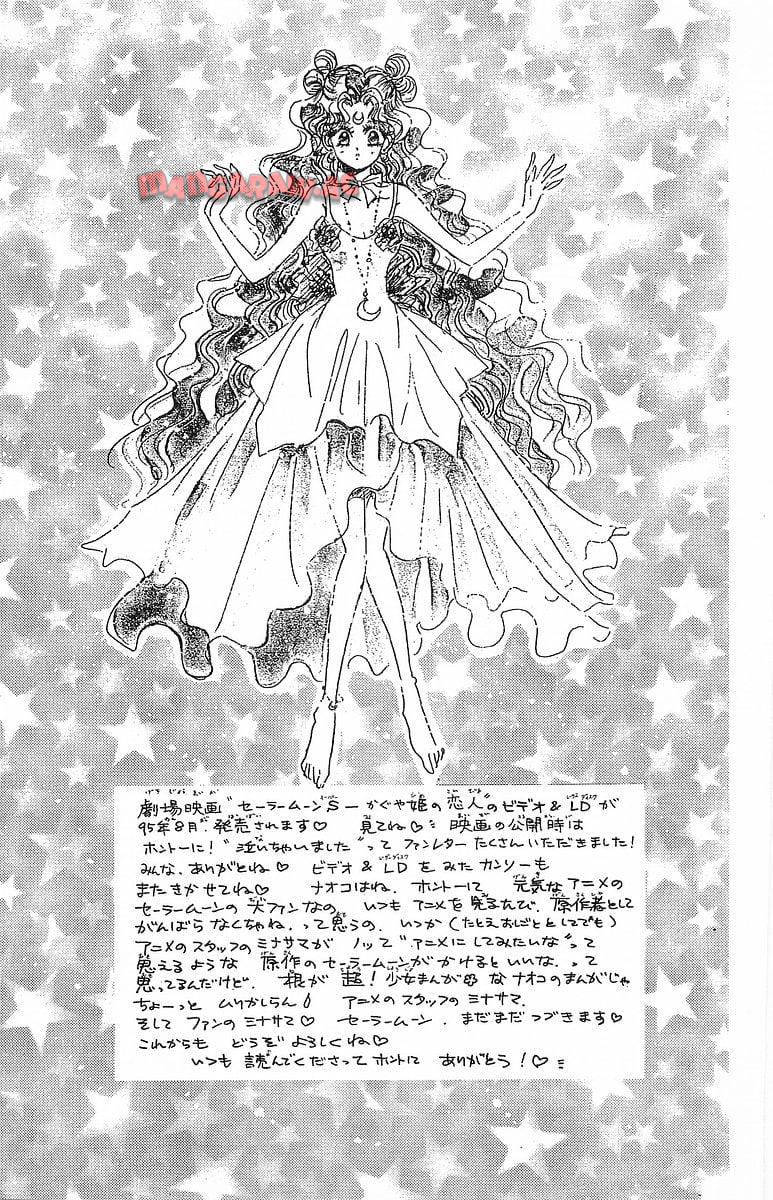 MANGARAMA.NE
劇場映画"セーラームーンSーかぐや姫の恋人"のビデオ&LDが
95年8月.発売されます♡ 見てね♡ 映画の公開時は
ホントーに!"泣いちゃいました"ってファンレターたくさんいただきました!
みんな、ありがとね♡ ビデオ&LDをみたカンソーも
またきかせてね♡ ナオコはね.ホントーに 元気なアニメの
セーラームーンの大ファンなの. いつもアニメを見るたび.原作者として
がんばらなくちゃね.って思うの. いつか(たとえおせじとしてでも)
アニメのスタッフのミナサマが ノッて"アニメにしてみたいな"って
思えるような 原作のセーラームーンがかけるといいな.って
思ってるんだけど. 根が 超!少女まんがなナオコのまんがじゃ
ちょーっと ムリかしらん アニメのスタッフのミナサマ.
そして ファンのミナサマ♡ セーラームーン.まだまだつづきます♡
これからも どうぞ よろしくね♡
いつも 読んでくださって ホントに ありがとう!♡